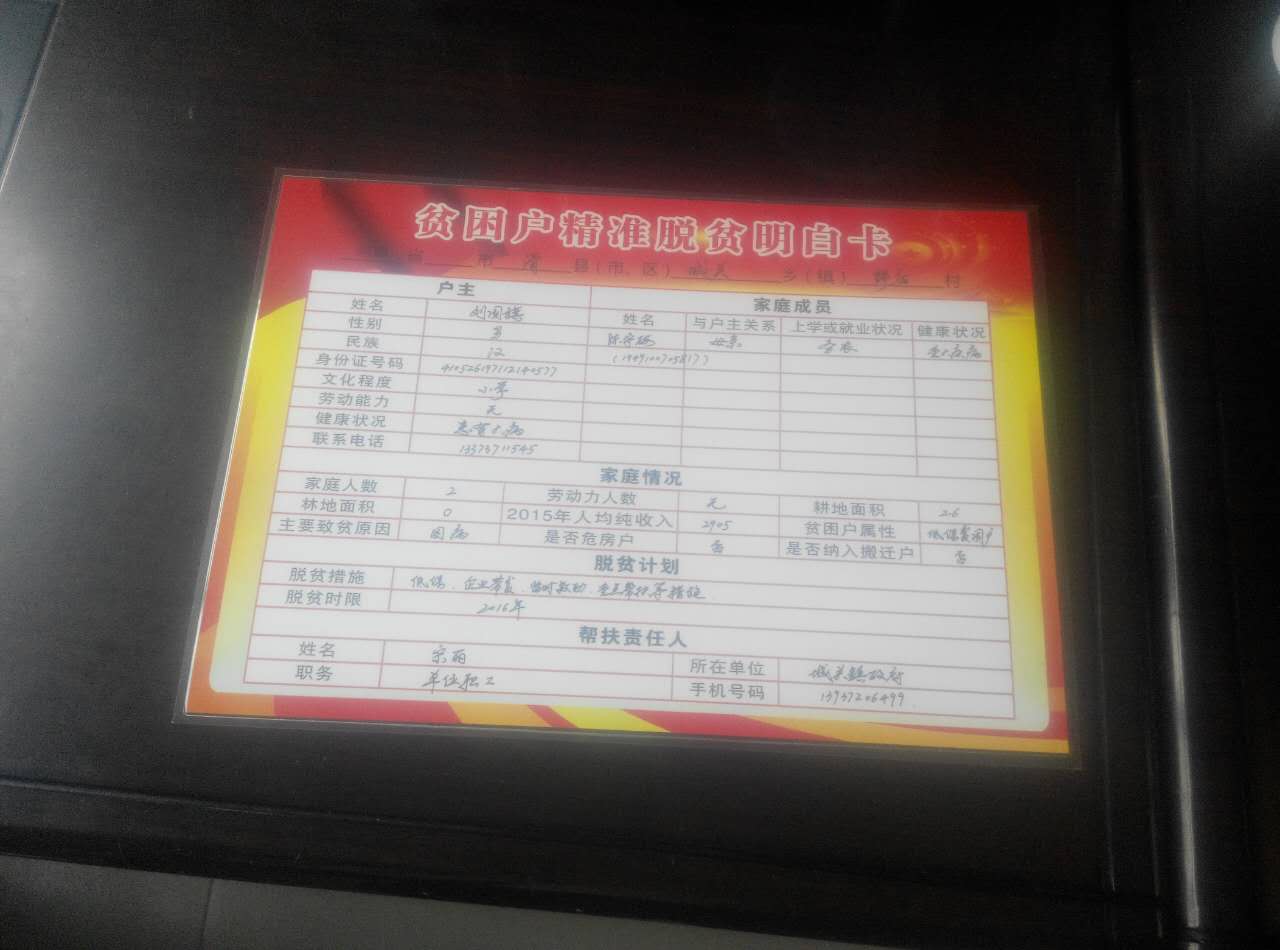 贫困户精准脱贫明白卡
省 市 滑 县(市、区) 城关 乡(镇) 村
户主 家庭成员
姓名 刘国
性别 男
民族 汉
身份证号码
文化程度 小学
劳动能力 无
健康状况 患有大病
联系电话 13373711545
姓名 与户主关系 上学或就业状况 健康状况
母亲 务农
家庭情况
家庭人数 2 劳动力人数 无 耕地面积 2.6
林地面积 0 2015年人均纯收入 2905 贫困户属性 低保贫困户
主要致贫原因 因病 是否危房户 否 是否纳入搬迁户 否
脱贫计划
脱贫措施 低保、企业带贫、临时救助、重点帮扶等措施
脱贫时限 2016年
帮扶责任人
姓名 宗丽 所在单位 城关镇政府
职务 单位职工 手机号码 13937206499